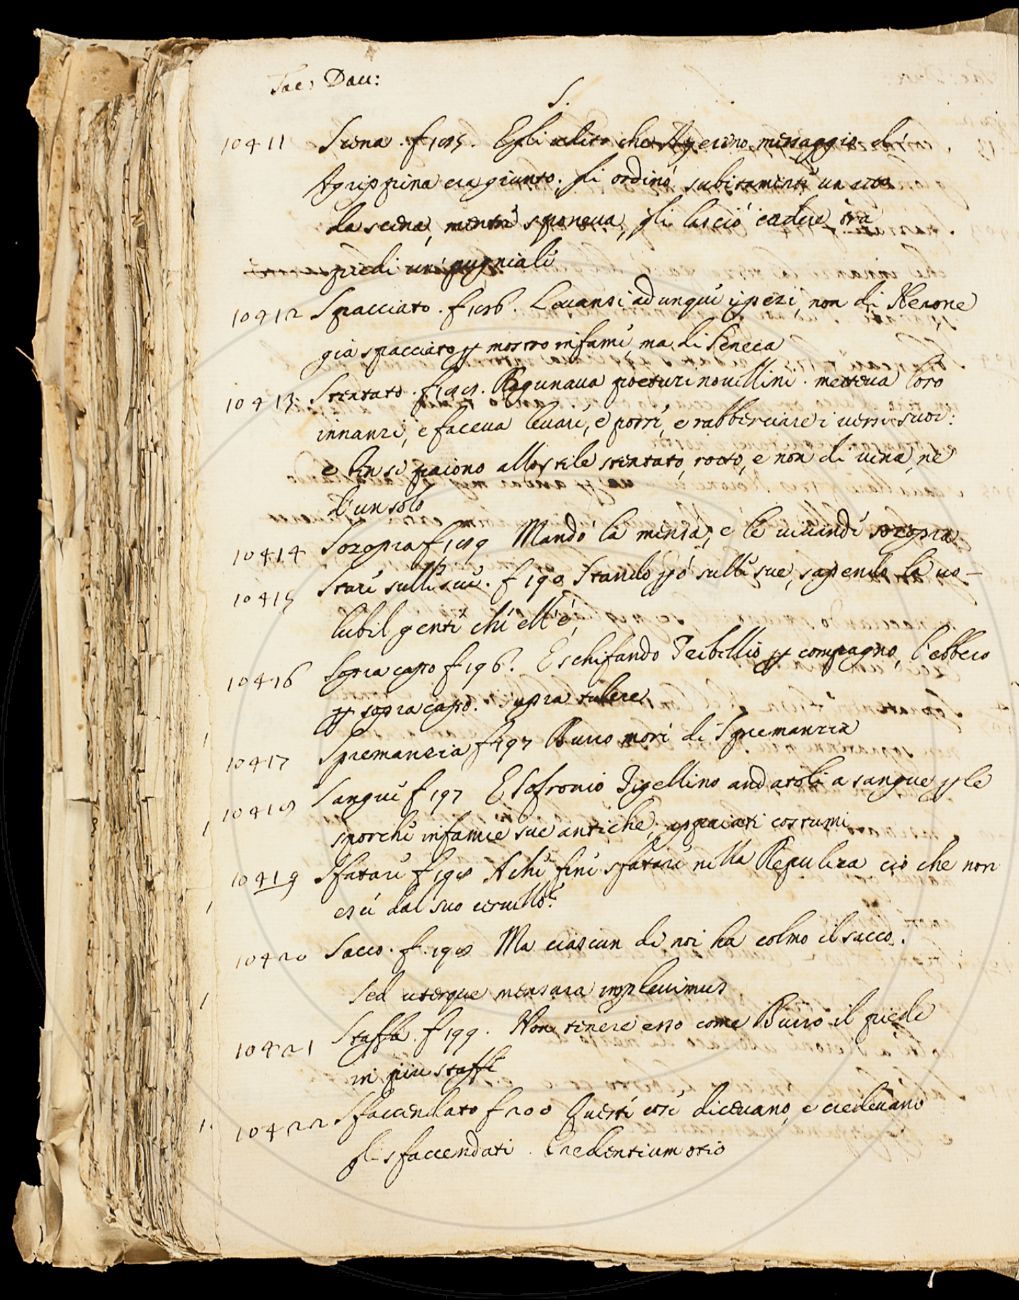 Tac: Dau:
S.
10411 Scena. f 185. Egli udito che Agerino messaggio di
Agrippina era giunto, gli ordinò subitamente un atto
da scena, mentre sponeva, gli lasciò cadere tra
piedi un pugniale
10412 Spacciato. f 186. Levansi adunque i pezi, non di Nerone
gia spacciato p mostro infame ma di Seneca
10413 Stentato. f 188. Ragunava poeturi novellini. metteva loro
innanzi, e faceva levare, e porre, e rabberciare i versi suoi:
e ben si paiono allo stile stentato, rotto, e non di vena, ne
d'un solo
10414 Sozopra f 189 Mandò la mensa, e le vivande sozopra
10415 Stare sulle sue. f 190 Stando pò sulle sue, sapendo la vo-
lubil gente chi ell'è,
10416 Sopra capo f 196. E schifando Trebellio p compagno, l'ebbero
p sopra capo. supra tulere
10417 Spremanzia f 197 Burro morì di Spremanzia
10418 Sangue f 197 E Sofronio Tigellino andatoli a sangue p le
sporche infamie sue antiche, e sfacciati costumi
10419 Sfatare f 198 A che fine sfatare nella Republica ciò che non
esce dal suo cervello?
10420 Sacco. f. 198 Ma ciascun di noi ha colmo il sacco.
Sed uterque mensura implevimus
10421 Staffa. f 199. Non tenere esso come Burro il piede
in più staffe
10422 Sfaccendato f 200 Queste cose dicevano, e credevano
gli sfaccendati. Credentium otio